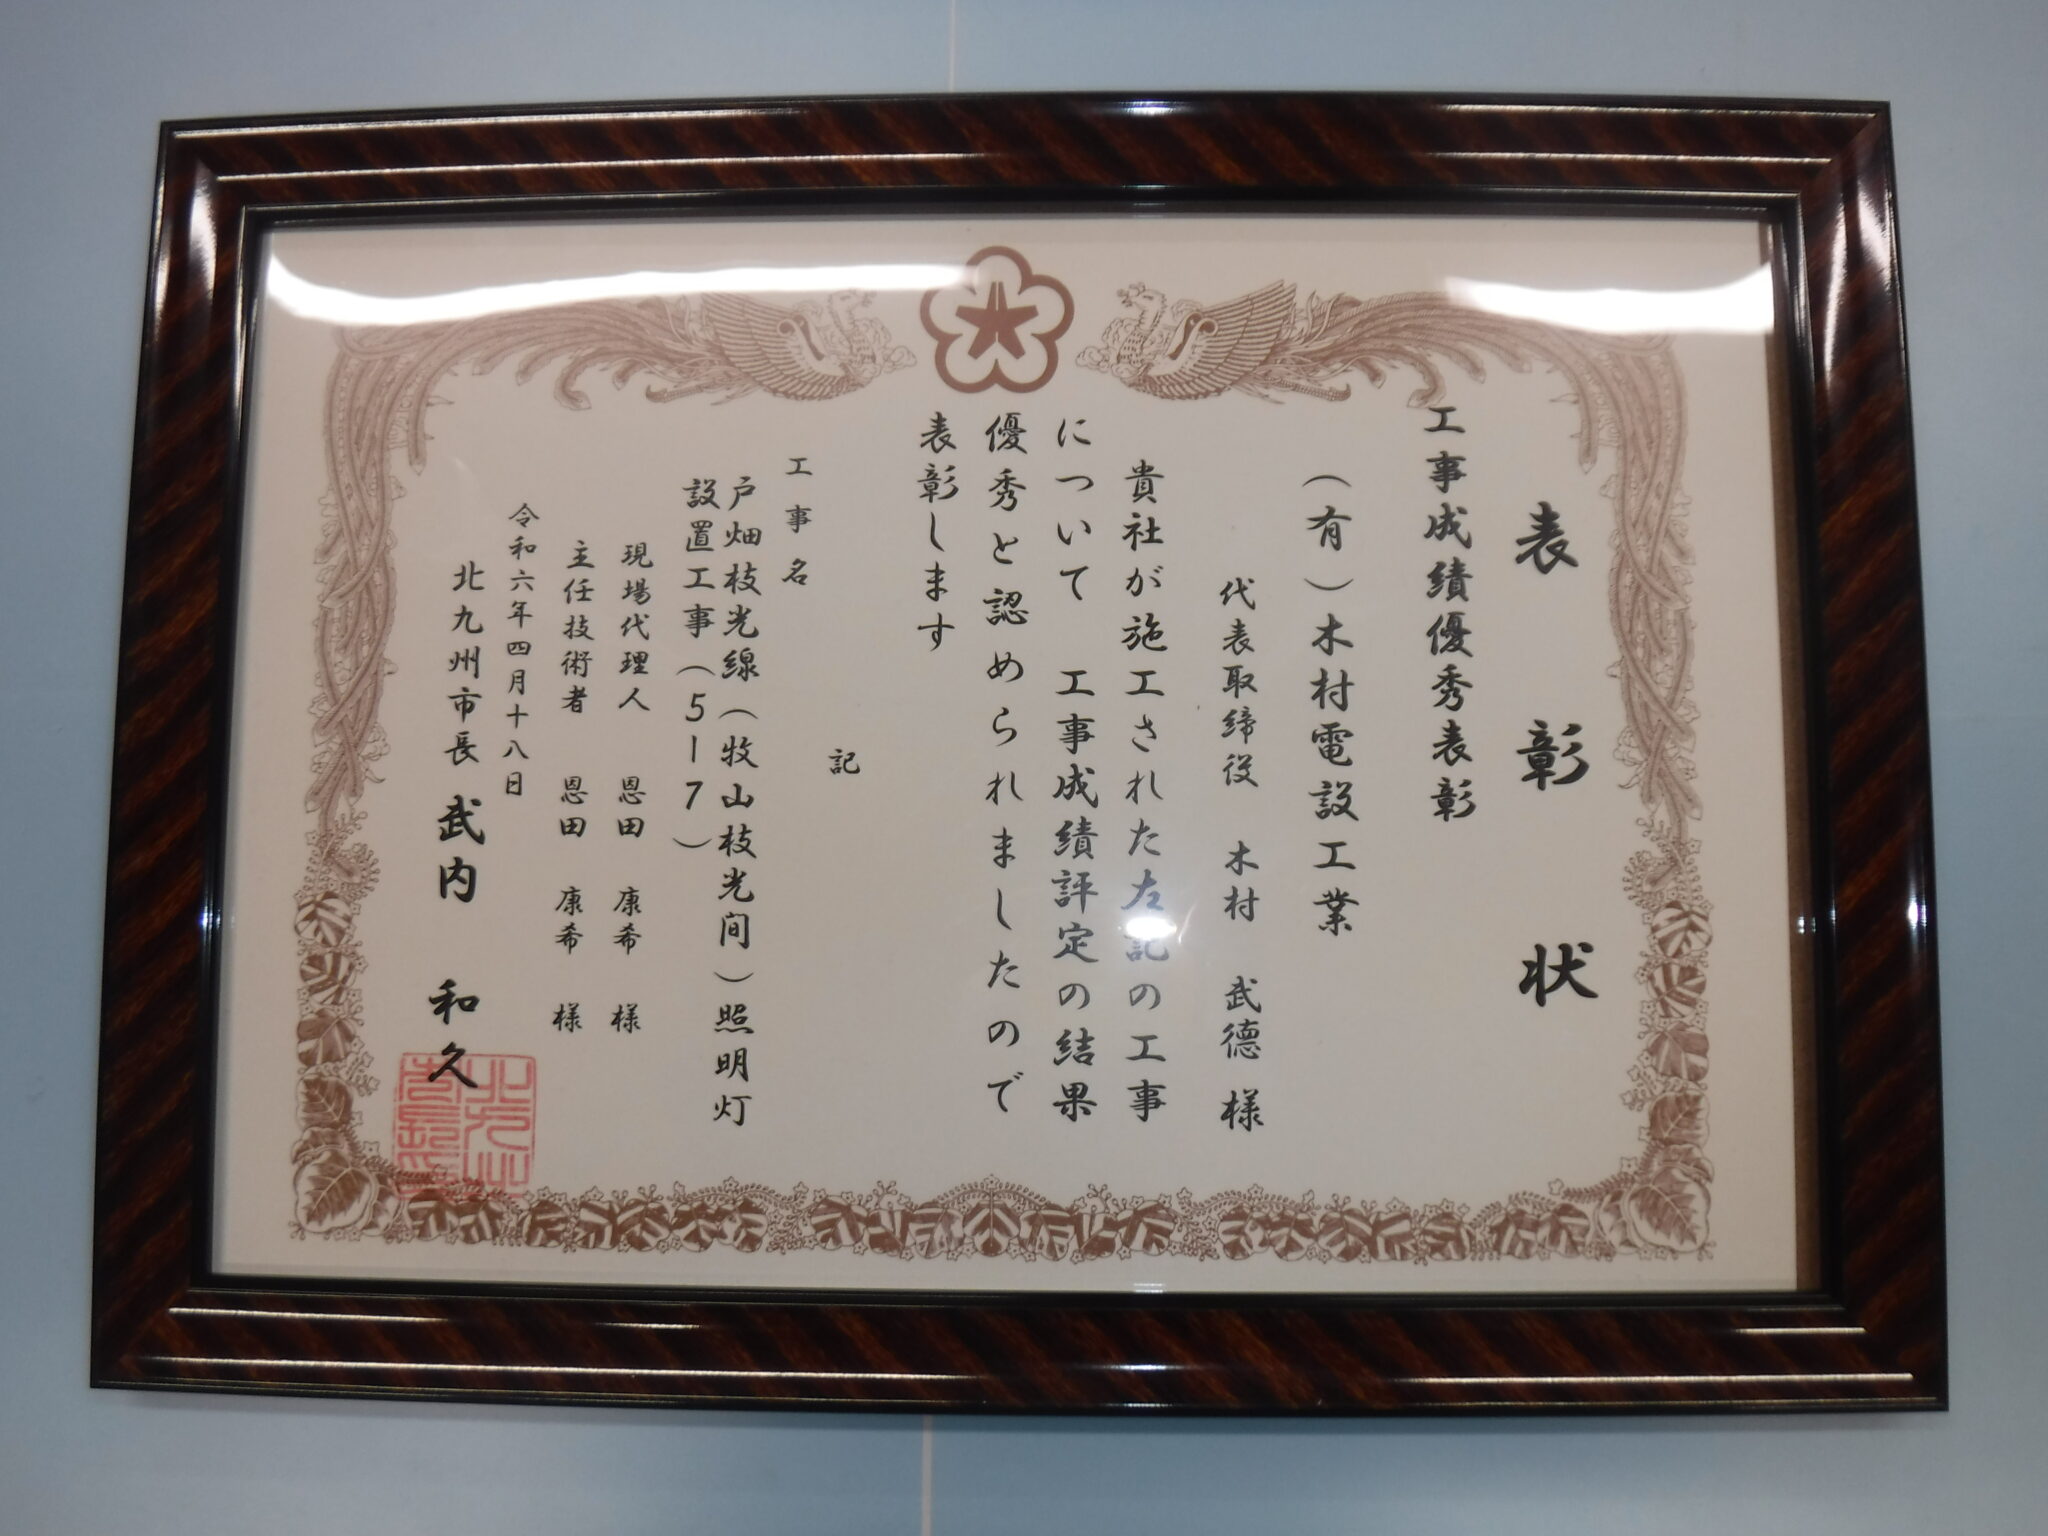 表彰状
工事成績優秀表彰
（有）木村電設工業
代表取締役 木村 武德 様
貴社が施工された左記の工事
について 工事成績評定の結果
優秀と認められましたので
表彰します
記
工事名
戸畑枝光線（牧山枝光間）照明灯
設置工事（5－7）
現場代理人 恩田 康希 様
主任技術者 恩田 康希 様
令和六年四月十八日
北九州市長 武内 和久